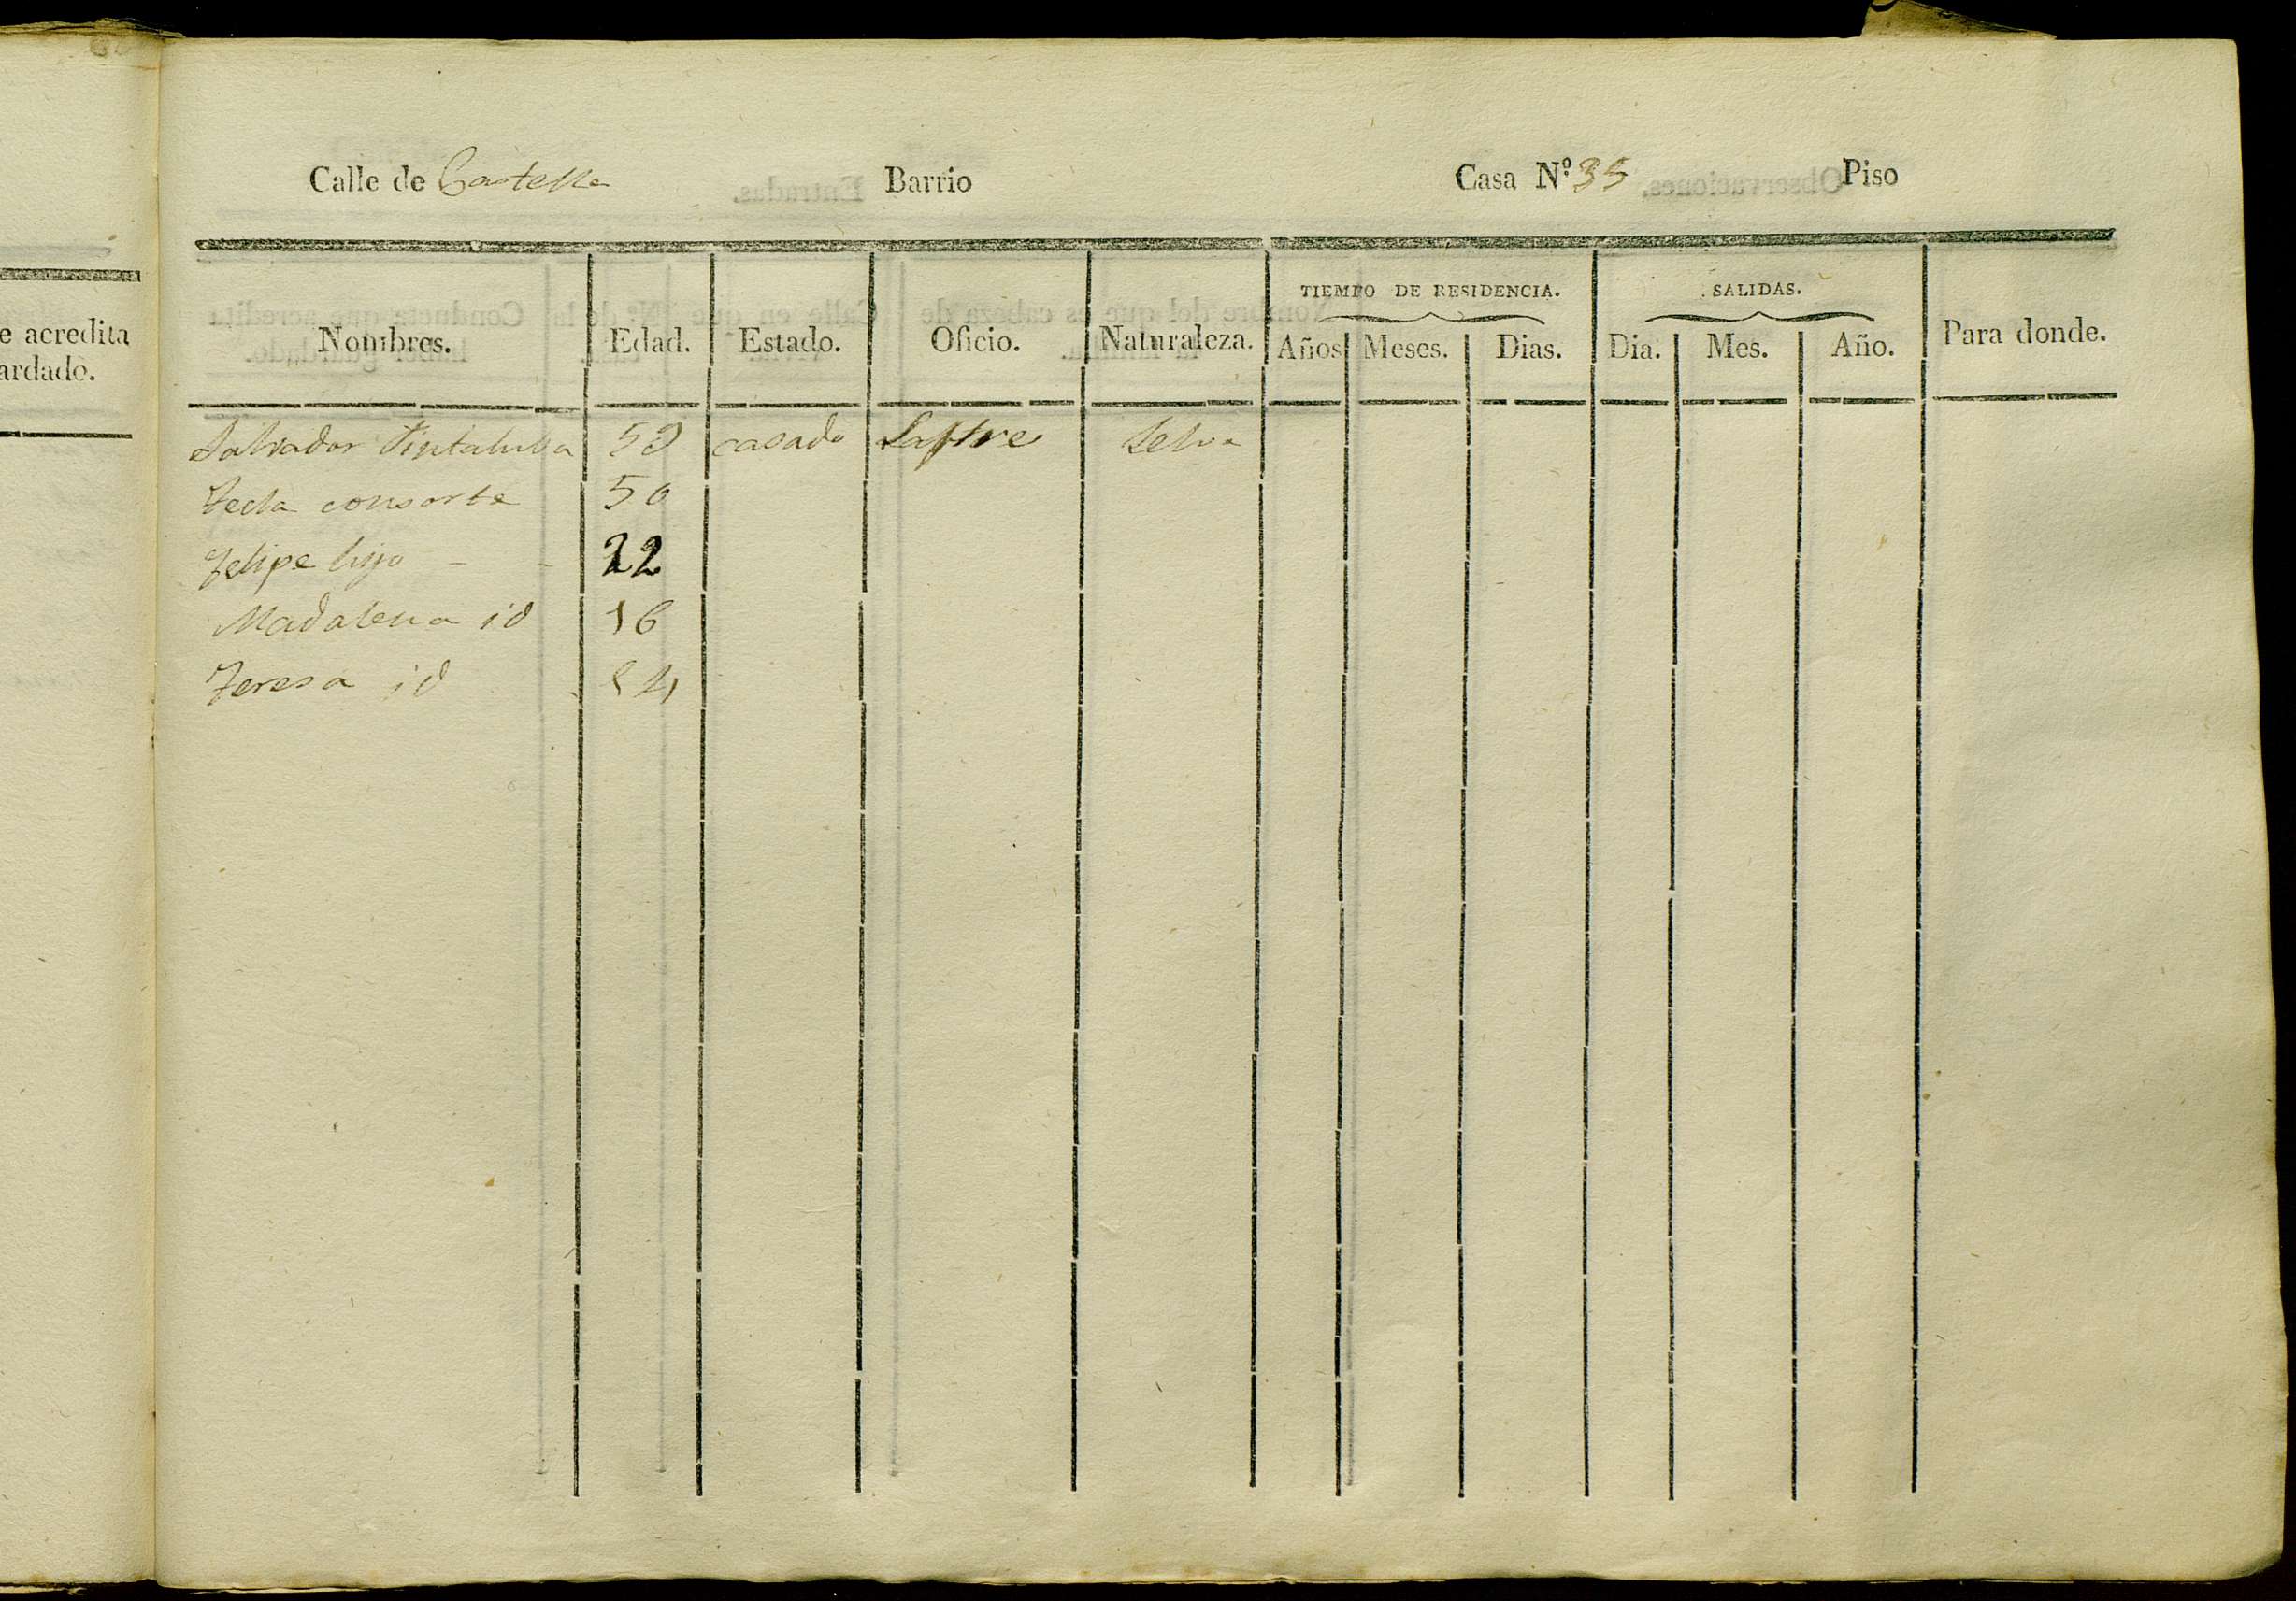 Calle de Castella Barrio Casa N.º 35 Piso
TIEMPO DE RESIDENCIA. SALIDAS.
Nombres. Edad. Estado. Oficio. Naturaleza. Años Meses. Dias. Dia. Mes. Año. Para donde.
e acredita
ardado.
Salvador 53 casado Sastre Selva
Tecla consorte 50
Felipe hijo - - 22
Madalena id 16
Teresa id 14